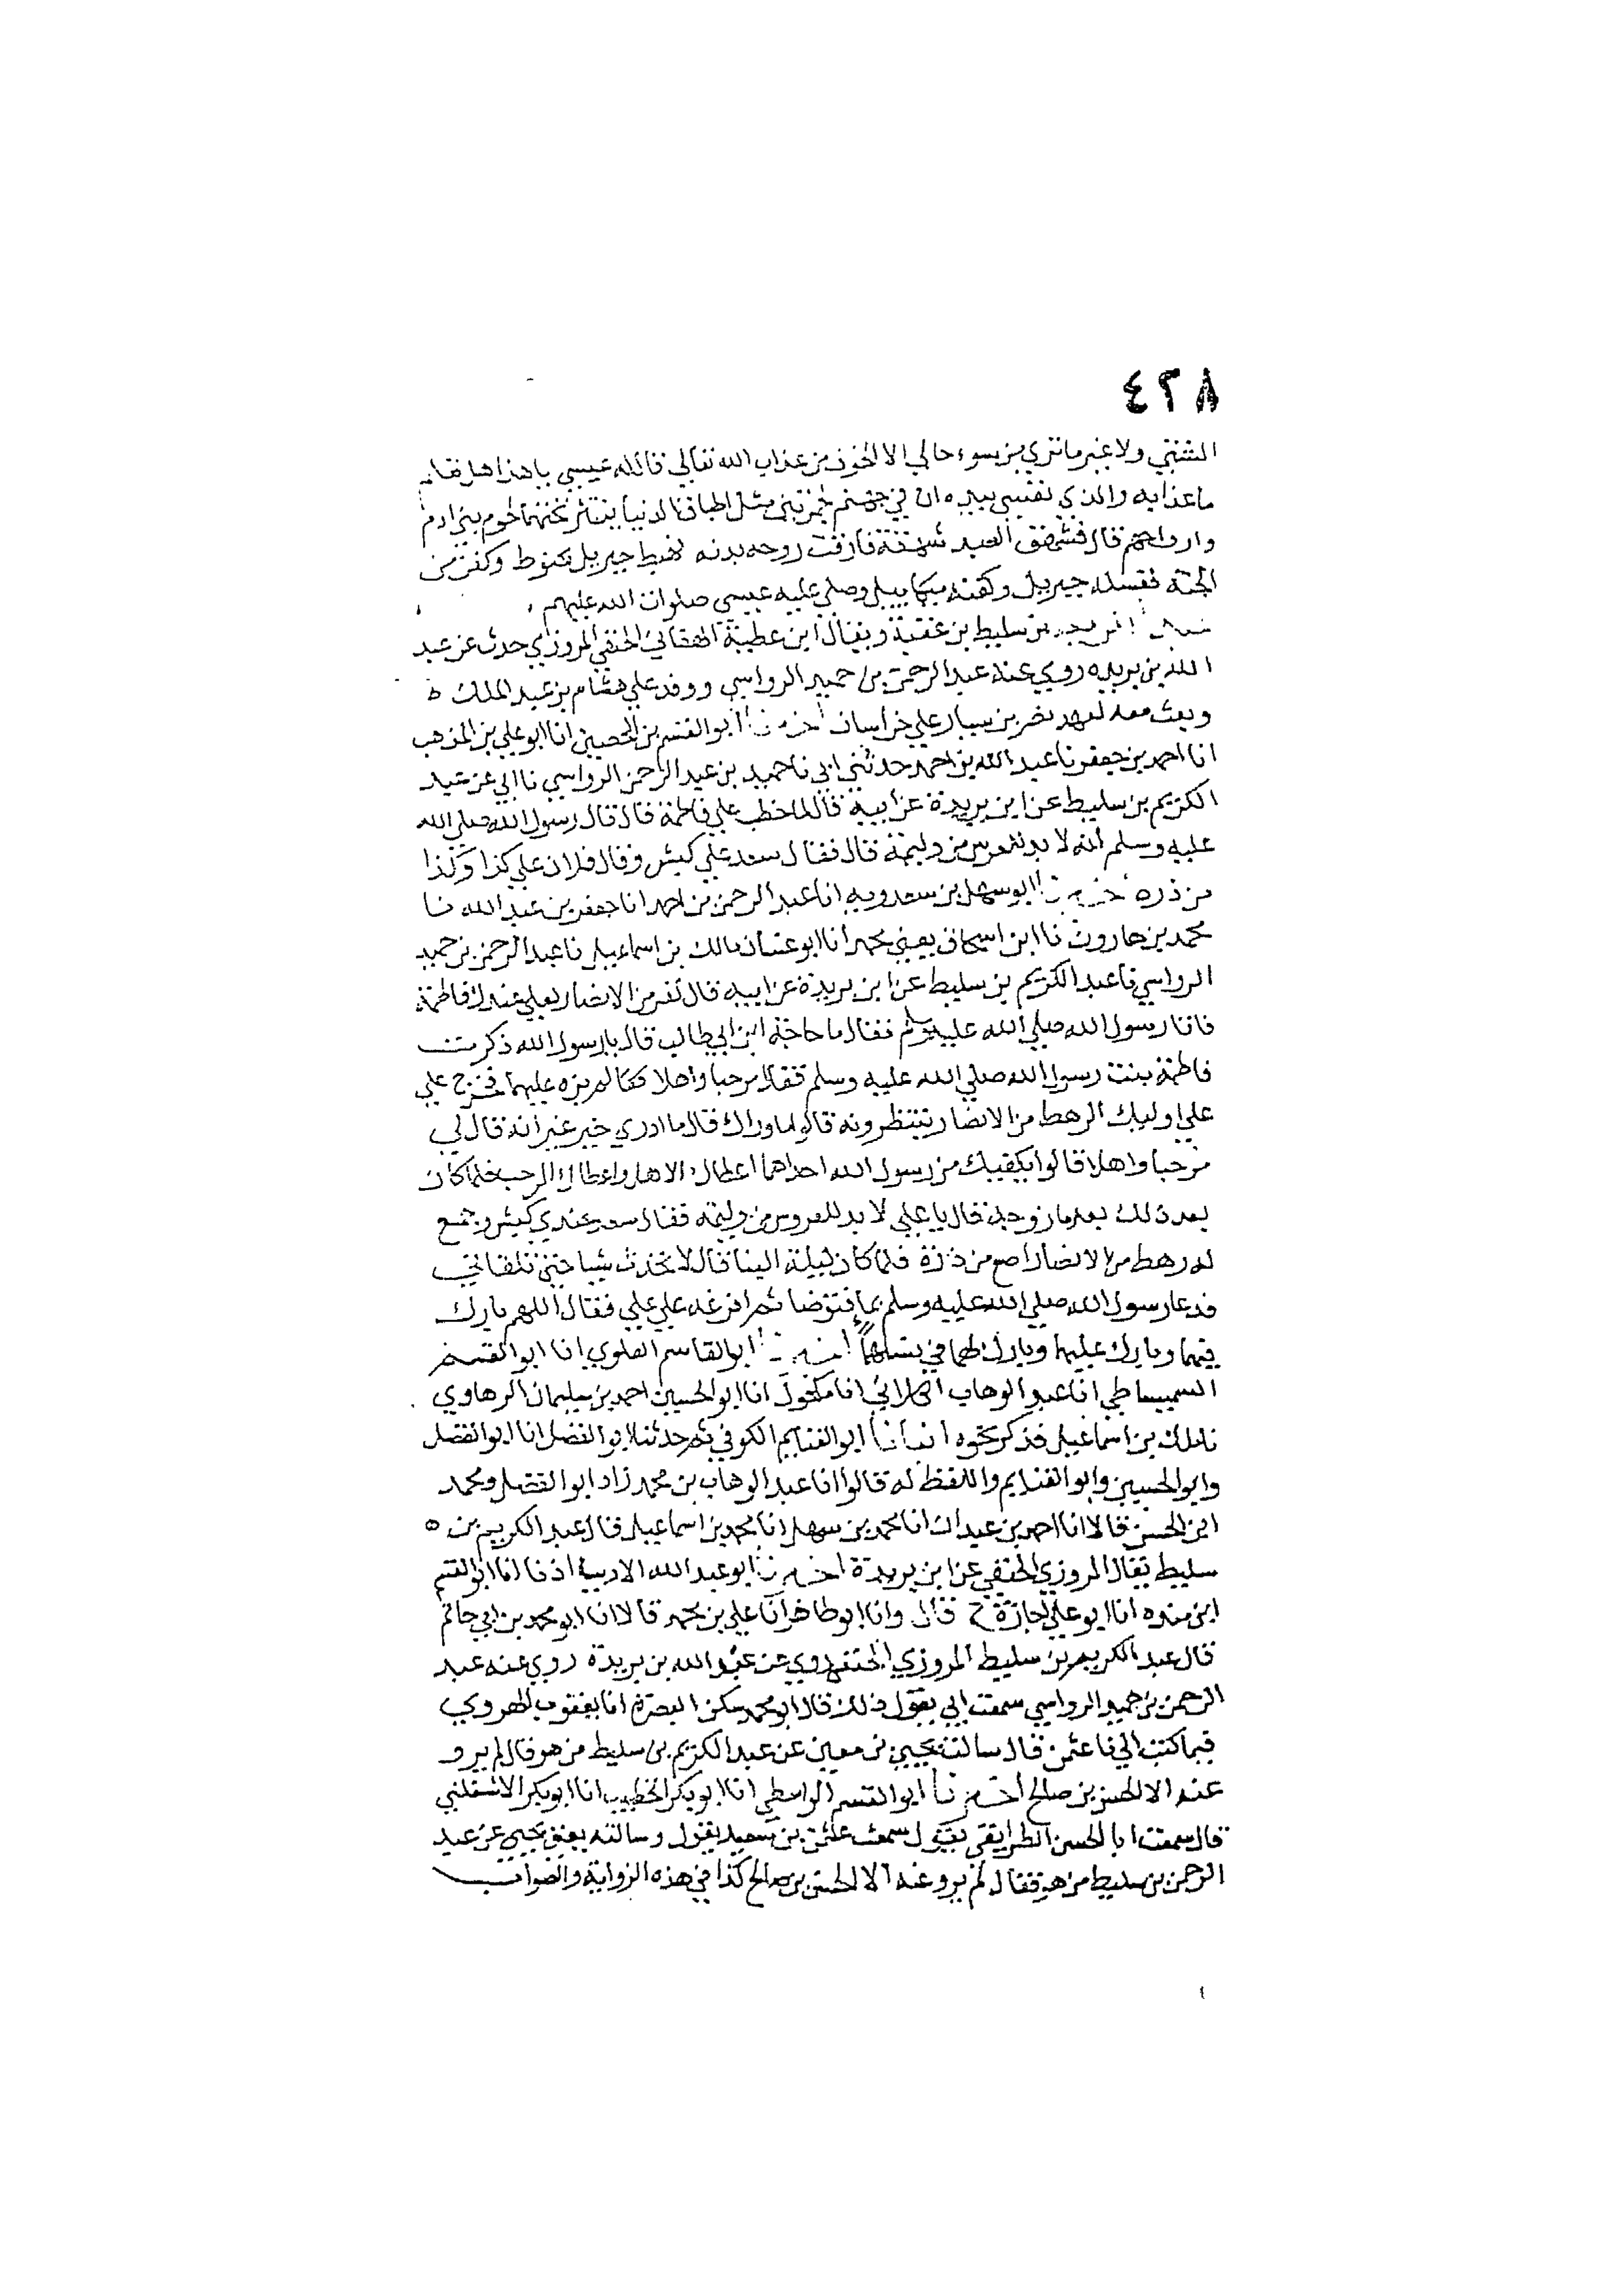 ٤٣٨
ولا غير ما تري من سوء حالي الا الخوف من عذاب الله تعالي فقال له عيسي يا هذا هل
ما عذابه والذي نفسي بيده ان في جهنم مثل اطباق الدنيا لحوم بني ادم
وارواحهم قال فشهق العبد شهقة فارقت روحه بدنه فهبط جبريل بحنوط وكفن من
الجنة فغسله جبريل وكفنه ميكاييل وصلي عليه عيسي صلوات الله عليهم
بن سليط بن عقبة ويقال ابن عطية الحنفي المروزي حدث عن عبد
الله بن بريده روي عنه عبد الرحمن بن حميد الرواسي ووفد علي هشام بن عبد الملك
وبعث معه بعهد نصر بن سيار علي خراسان اخبرنا ابو القسم بن الحصين انا ابو علي بن المذهب
انا احمد بن جعفر نا عبد الله بن احمد حدثني ابي نا حميد بن عبد الرحمن الرواسي نا ابي عن عبد
الكريم بن سليط عن ابن بريدة عن ابيه قال لما خطب علي فاطمة قال قال رسول الله صلي الله
عليه وسلم انه لا بد للعرس من وليمة قال فقال سعد علي كبش وقال فلان علي كذا وكذا
من ذره اخبرنا ابو سهل بن سعدويه انا عبد الرحمن بن احمد انا جعفر بن عبد الله نا
محمد بن هارون نا ابن اسحاق يعني محمد انا ابو غسان مالك بن اسماعيل نا عبد الرحمن بن حميد
الرواسي نا عبد الكريم بن سليط عن ابن بريدة عن ابيه قال نفر من الانصار لعلي عندك فاطمة
فاتا رسول الله صلي الله عليه وسلم فقال ما حاجة ابن ابي طالب قال يا رسول الله ذكرت
فاطمة بنت رسول الله صلي الله عليه وسلم فقال مرحبا واهلا لم يزد عليهما فخرج علي
علي اوليك الرهط من الانصار ينتظرونه قالوا ما وراك قال ما ادري خير غير انه قال لي
مرحبا واهلا قالوا يكفيك من رسول الله احداهما اعطاك الاهل واعطاك الرحب فلما كان
بعد ذلك بعد ما زوجه قال يا علي لا بد للعروس من وليمة فقال سعد عندي كبش وجمع
له رهط من الانصار اصع من ذرة فلما كان ليلة البنا قال لا تحدث شيا حتي تلقاني
فدعا رسول الله صلي الله عليه وسلم بما فتوضا ثم افرغه علي علي فقال اللهم بارك
فيهما وبارك عليهما وبارك لهما في نسلهما اخبرنا ابو القاسم العلوي انا ابو القسم
السميساطي انا عبد الوهاب الكلابي انا مكحول انا ابو الحسين احمد بن سليمان الرهاوي
نا مالك بن اسماعيل فذكر نحوه انبانا ابو الغنايم الكوفي ثم حدثنا ابو الفضل انا ابو الفضل
وابو الحسين وابو الغنايم واللفظ له قالوا انا عبد الوهاب بن محمد زاد ابو الفضل ومحمد
ابن الحسن قالا انا احمد بن عبدان انا محمد بن سهل انا محمد بن اسماعيل قال عبد الكريم بن
سليط يقال المروزي الحنفي عن ابن بريدة اخبرنا ابو عبد الله الاديب اذنا انا ابو القسم
ابن منده انا ابو علي اجازة ح قال وانا ابو طاهر انا علي بن محمد قالا انا ابو محمد بن ابي حاتم
قال عبد الكريم بن سليط المروزي الحنفي روي عن عبد الله بن بريدة روي عنه عبد
الرحمن بن حميد الرواسي سمعت ابي يقول ذلك قال ابو محمد سكن البصرة انا يعقوب الهروي
فيما كتب الي نا عثمن قال سالت يحيي بن معين عن عبد الكريم بن سليط من هو قال لم يرو
عنه الا الحسن بن صالح اخبرنا ابو القسم الواسطي انا ابو بكر الخطيب انا ابو بكر الاشناني
قال سمعت ابا الحسن الطرايفي يقول سمعت عثمن بن سعيد يقول وسالته يعني يحيي عن عبد
الرحمن بن سليط من هو فقال لم يرو عنه الا الحسن بن صالح كذا في هذه الرواية والصواب